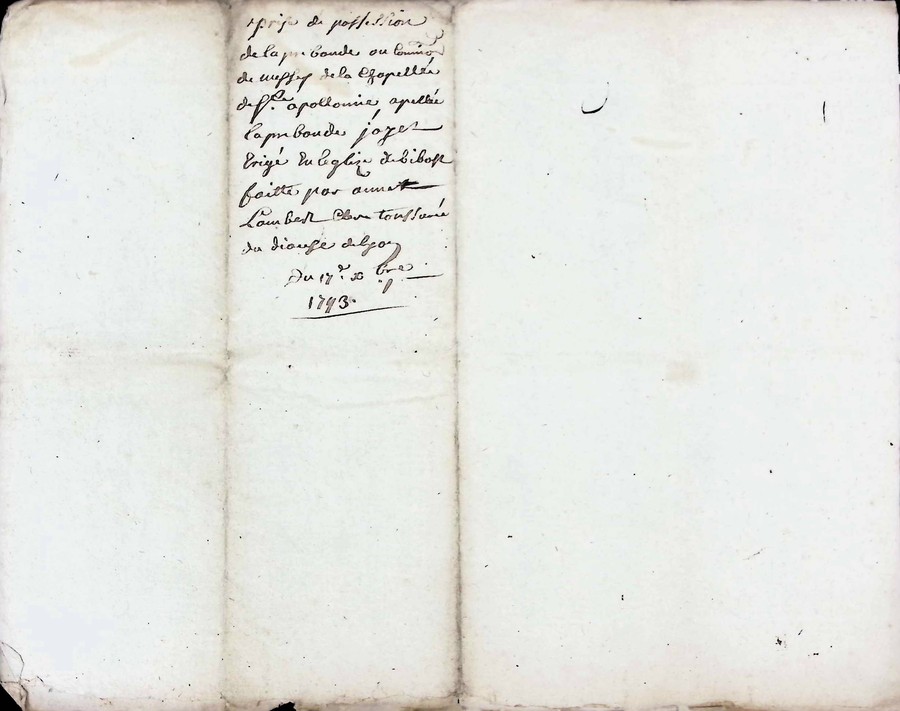 prise de possession
de la prebande ou Commion
de messes de la Chapelle
de Ste. apollonie, apellée
la prebande jayet
Erigé En leglize de Bibost
faitte par annet
Lambert Clerc tonssuré
du diouseze de Lyon
Du 17e. Xbre
1743.